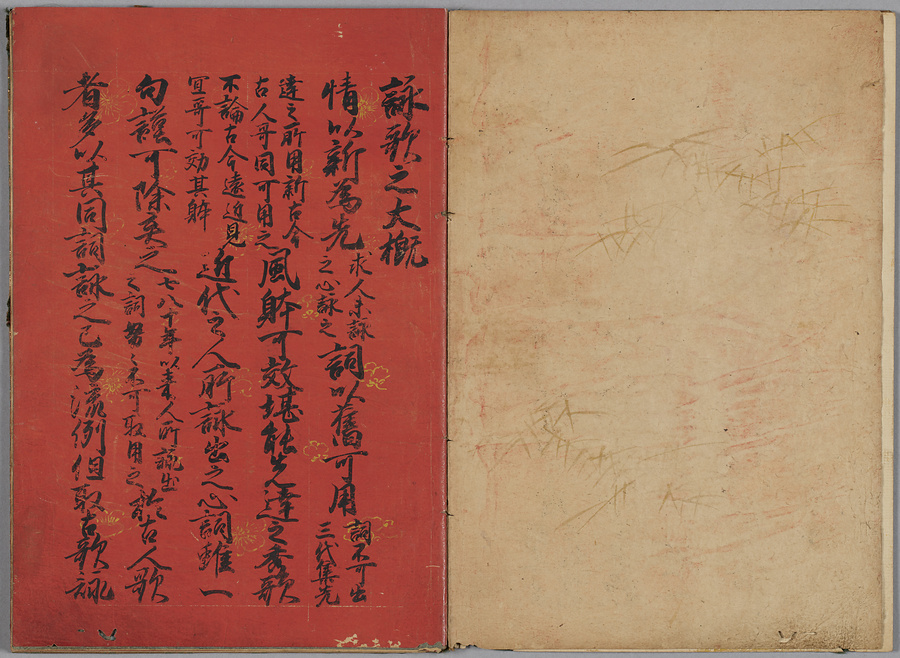 詠歌之大概
情以新為先 求人未詠
之心詠之 詞以舊可用 詞不可出
三代集先
達之所用新古今
古人哥同可用之 風躰可效堪能先達之秀歌
不論古今遠近見
宜哥可効其躰 近代之人所詠出之心詞雖一
句謹可除弃之 七八十年以来人所詠出
之詞努々不可取用之 於古人歌
者多以其同詞詠之已為流例但取古歌詠